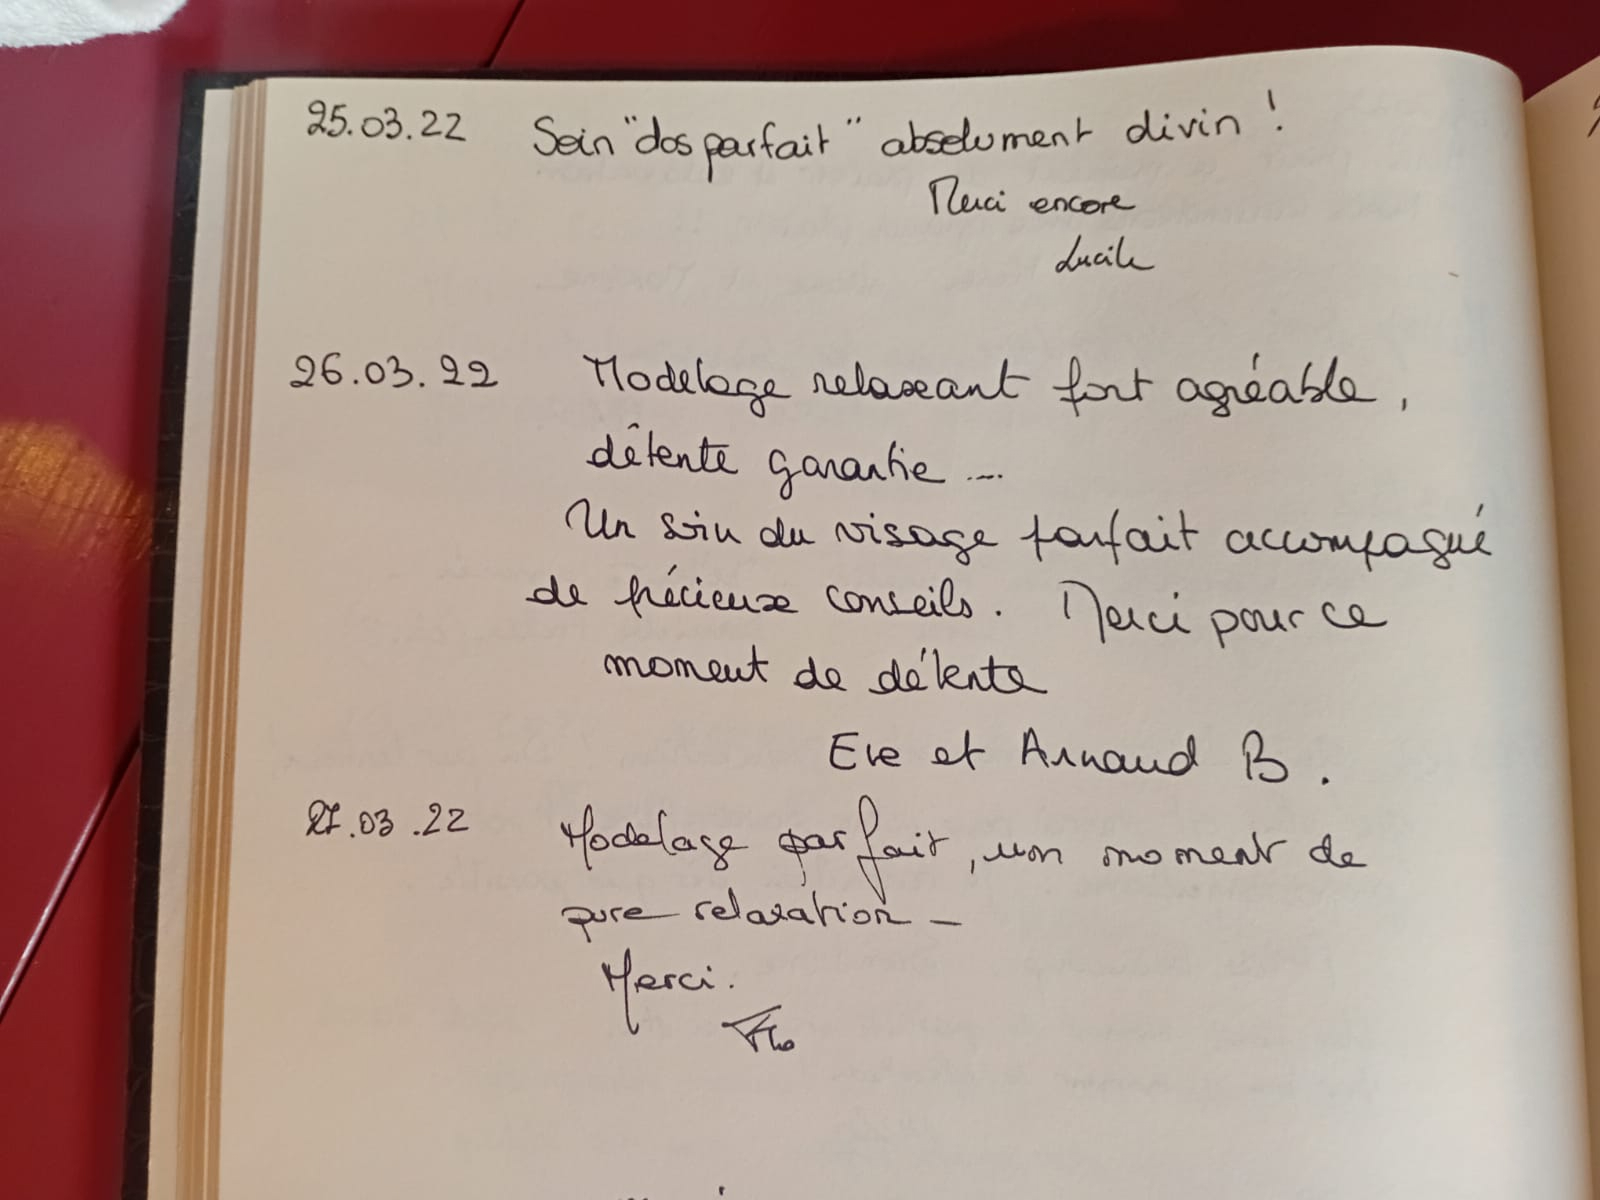 25.03.22 Soin "dos parfait" absolument divin !
Merci encore
Lucile
26.03.22 Modelage relaxant fort agréable,
détente garantie ...
Un soin du visage parfait accompagné
de précieux conseils. Merci pour ce
moment de détente
Eve et Arnaud B.
27.03.22 Modelage parfait, un moment de
pure relaxation -
Merci.
Flo